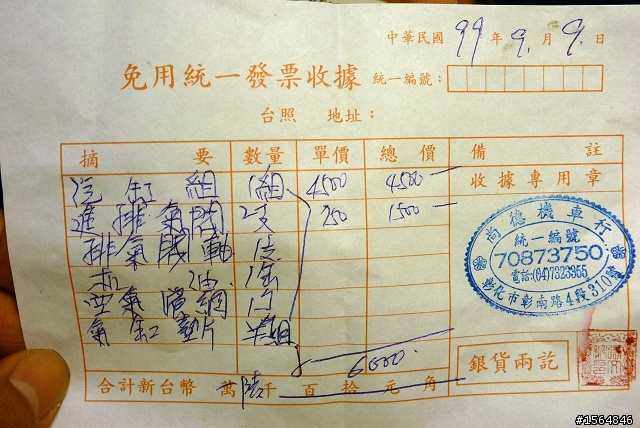 中華民國 99 年 9. 月 9. 日
免用統一發票收據 統一編號:
台照 地址:
摘要 數量 單價 總價 備註
汽缸組 1組 4500 4500
收據專用章
進排氣門 2支 750 1500
排氣 1支
油. 1
空氣濾網 1
氣缸墊片 半組
6000.
尚德機車行
統一編號
70873750
電話:(04)7323955
彰化市彰南路4段310號
銀貨兩訖
合計新台幣 萬 陸 千 百 拾 元 角
#1564846